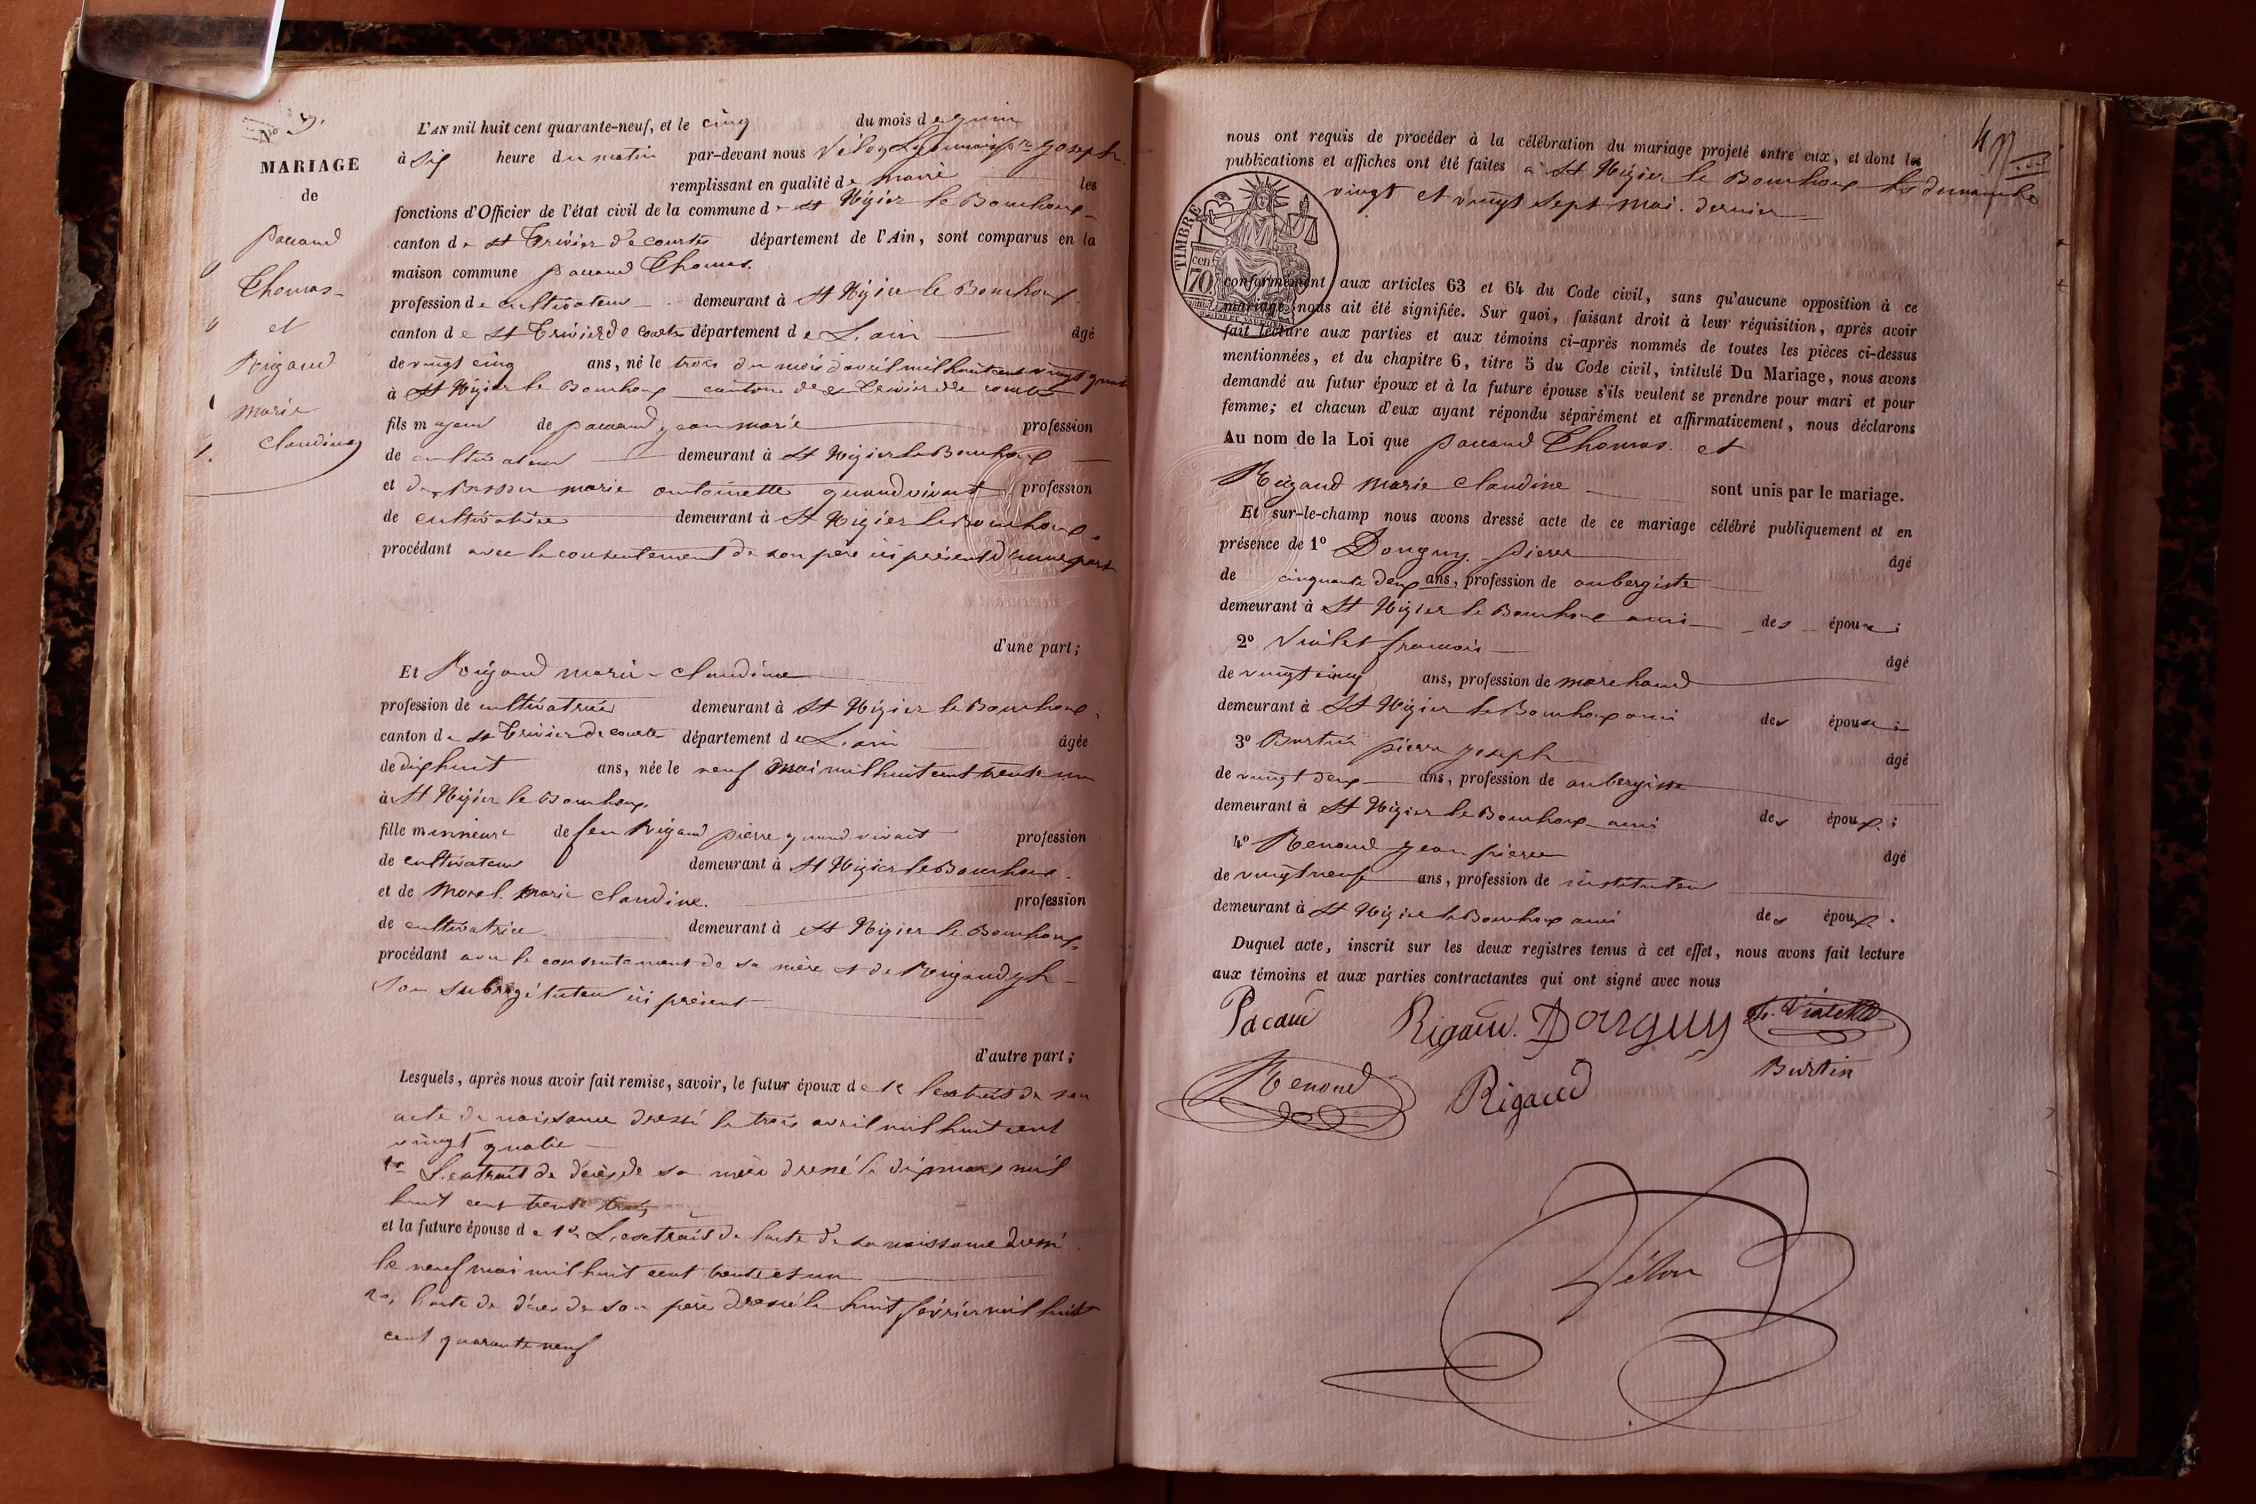 No 9.
MARIAGE
de
pacaud
Thomas
et
Rigaud
marie
claudine
L'AN mil huit cent quarante-neuf, et le cinq du mois de juin
à six heure du matin par-devant nous Joseph
remplissant en qualité de maire les
fonctions d'Officier de l'état civil de la commune de St Nizier le Bouchoux
canton de St Trivier de courtes département de l'Ain, sont comparus en la
maison commune pacaud Thomas.
profession de cultivateur demeurant à St Nizier le Bouchoux
canton de St Trivier de courtes département de L'ain âgé
de vingt cinq ans, né le trois du mois d'avril mil huit cent vingt quatre
à St Nizier le Bouchoux canton de St Trivier de courtes
fils majeur de pacaud jean marie profession
de cultivateur demeurant à St Nizier le Bouchoux
et de marie antoinette quand vivait profession
de cultivatrice demeurant à St Nizier le Bouchoux
procédant avec le consentement de son père ici présent d'une part
d'une part;
Et Rigaud marie claudine
profession de cultivatrice demeurant à St Nizier le Bouchoux,
canton de St Trivier de courtes département de L'ain âgée
de dix huit ans, née le neuf mai mil huit cent trente un
à St Nizier le Bouchoux.
fille minneure de feu Rigaud pierre quand vivait profession
de cultivateur demeurant à St Nizier le Bouchoux.
et de Morel marie claudine. profession
de cultivatrice demeurant à St Nizier le Bouchoux,
procédant avec le consentement de sa mère et de Rigaud jh
son subrogé tuteur ici présent
d'autre part;
Lesquels, après nous avoir fait remise, savoir, le futur époux de 1o l'extrait de son
acte de naissance dressé le trois avril mil huit cent
vingt quatre
L'extrait de décès de sa mère dressé le dix mars mil
huit cent trente trois
et la future épouse de 1o L'extrait de l'acte de sa naissance dressé
le neuf mai mil huit cent trente et un
2o, l'acte de décès de son père dressé le huit février mil huit
cent quarante neuf
nous ont requis de procéder à la célébration du mariage projeté entre eux, et dont les
publications et affiches ont été faites à St Nizier le Bouchoux les dimanche
vingt et vingt sept mai. dernier
TIMBRE
70 cen
conformément aux articles 63 et 64 du Code civil, sans qu'aucune opposition à ce
mariage nous ait été signifiée. Sur quoi, faisant droit à leur réquisition, après avoir
fait lecture aux parties et aux témoins ci-après nommés de toutes les pièces ci-dessus
mentionnées, et du chapitre 6, titre 5 du Code civil, intitulé Du Mariage, nous avons
demandé au futur époux et à la future épouse s'ils veulent se prendre pour mari et pour
femme; et chacun d'eux ayant répondu séparément et affirmativement, nous déclarons
Au nom de la Loi que pacaud Thomas. et
Rigaud marie claudine sont unis par le mariage.
Et sur-le-champ nous avons dressé acte de ce mariage célébré publiquement et en
présence de 1o Donguy pierre âgé
de cinquante deux ans, profession de aubergiste
demeurant à St Nizier le Bouchoux ami des époux;
2o Violet francois âgé
de vingt cinq ans, profession de marchand
demeurant à St Nizier le Bouchoux ami des époux;
3o Burtin pierre joseph âgé
de vingt deux ans, profession de aubergiste
demeurant à St Nizier le Bouchoux ami des époux;
4o Renoud jean pierre âgé
de vingt neuf ans, profession de instituteur
demeurant à St Nizier le Bouchoux ami des époux.
Duquel acte, inscrit sur les deux registres tenus à cet effet, nous avons fait lecture
aux témoins et aux parties contractantes qui ont signé avec nous
Pacaud Rigaud. Donguy
Renoud Rigaud Burtin